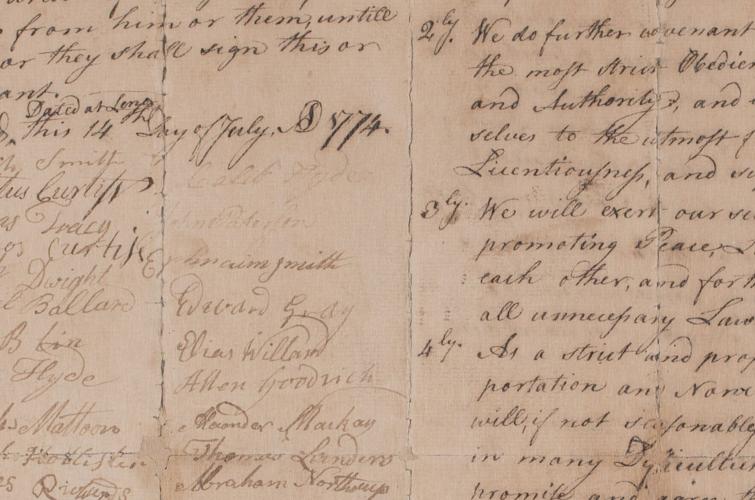 from him or them, untill
or they shall sign this or
ant.
Dated at Lenox
this 14th Day of July, AD 1774.
Smith
Curtiss
Tracy
Curtiss
Dwight
Ballard
Hyde
Mattoon
Caleb Hyde
John Paterson
Ephraim Smith
Edward Gray
Elias Willard
Allen Goodrich
Alexander Mackay
Thomas Landers
Abraham Northrup
2ly. We do further covenant
the most strict Obedien
and Authority, and
selves to the utmost
Licentiousness, and
3ly. We will exert our se
promoting Peace,
each other, and for th
all unnecessary Law
4ly. As a strict and prop
portation and None
will, if not seasonably
in many Difficulties
promise and agree